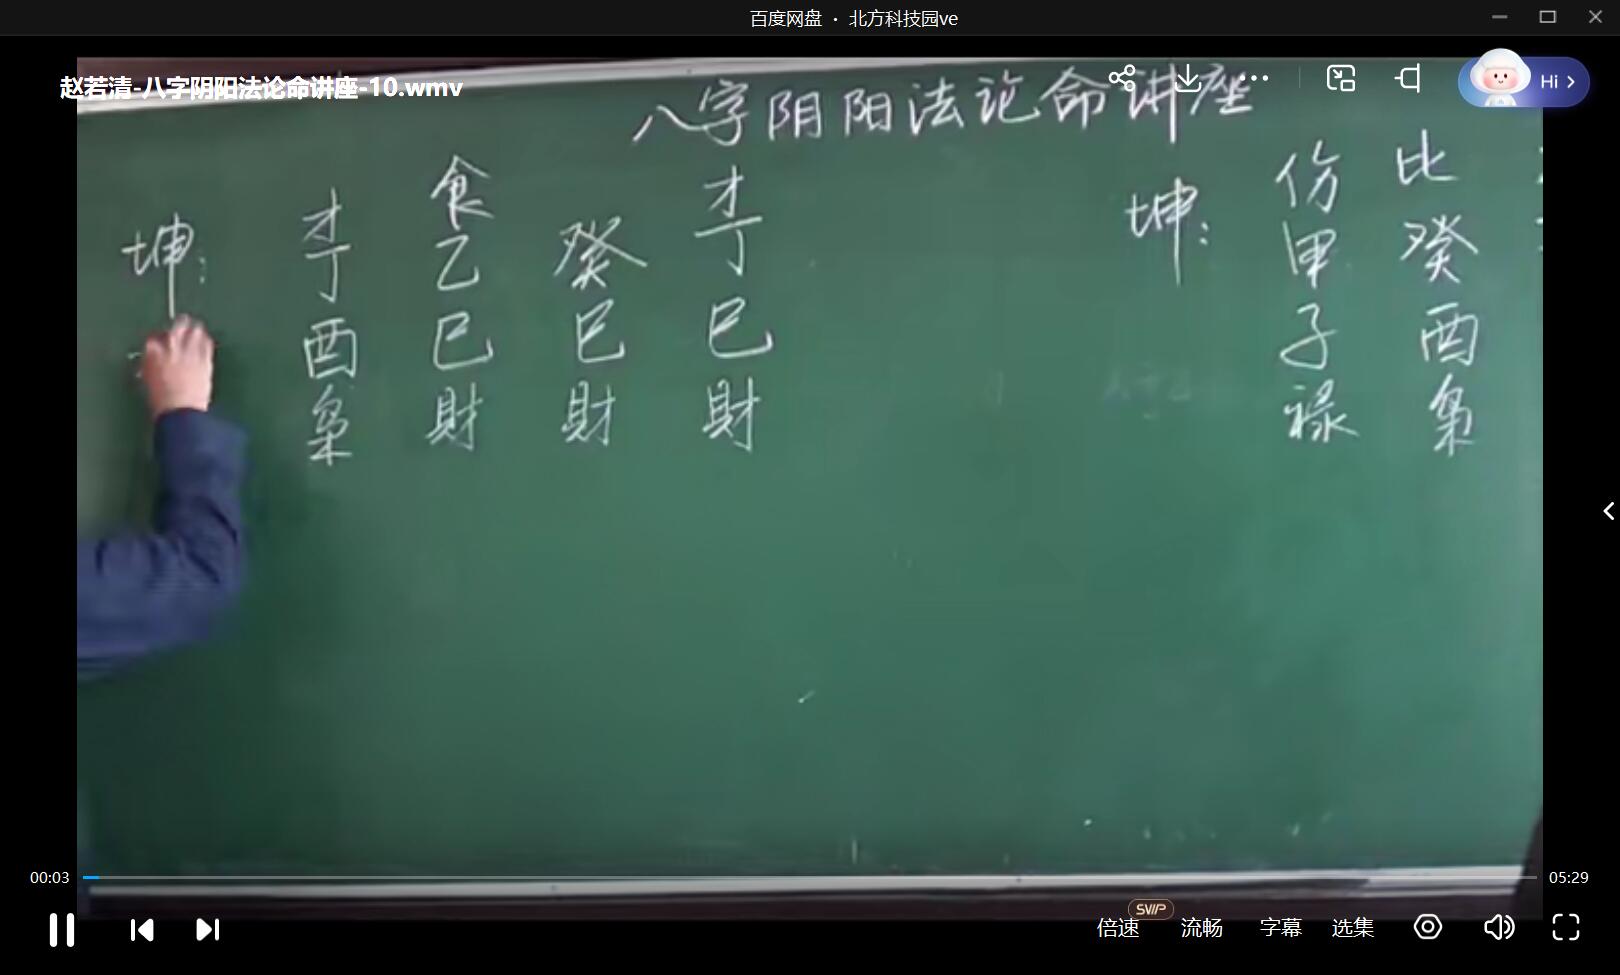 百度网盘 · 北方科技园ve
赵若清-八字阴阳法论命讲座-10.wmv
Hi
八字阴阳法论命讲座
坤：
才 食 才
丁 乙 癸 丁
酉 巳 巳 巳
枭 财 财 财
坤：
伤 比
甲 癸
子 酉
禄 枭
00:03
05:29
SVIP
倍速 流畅 字幕 选集